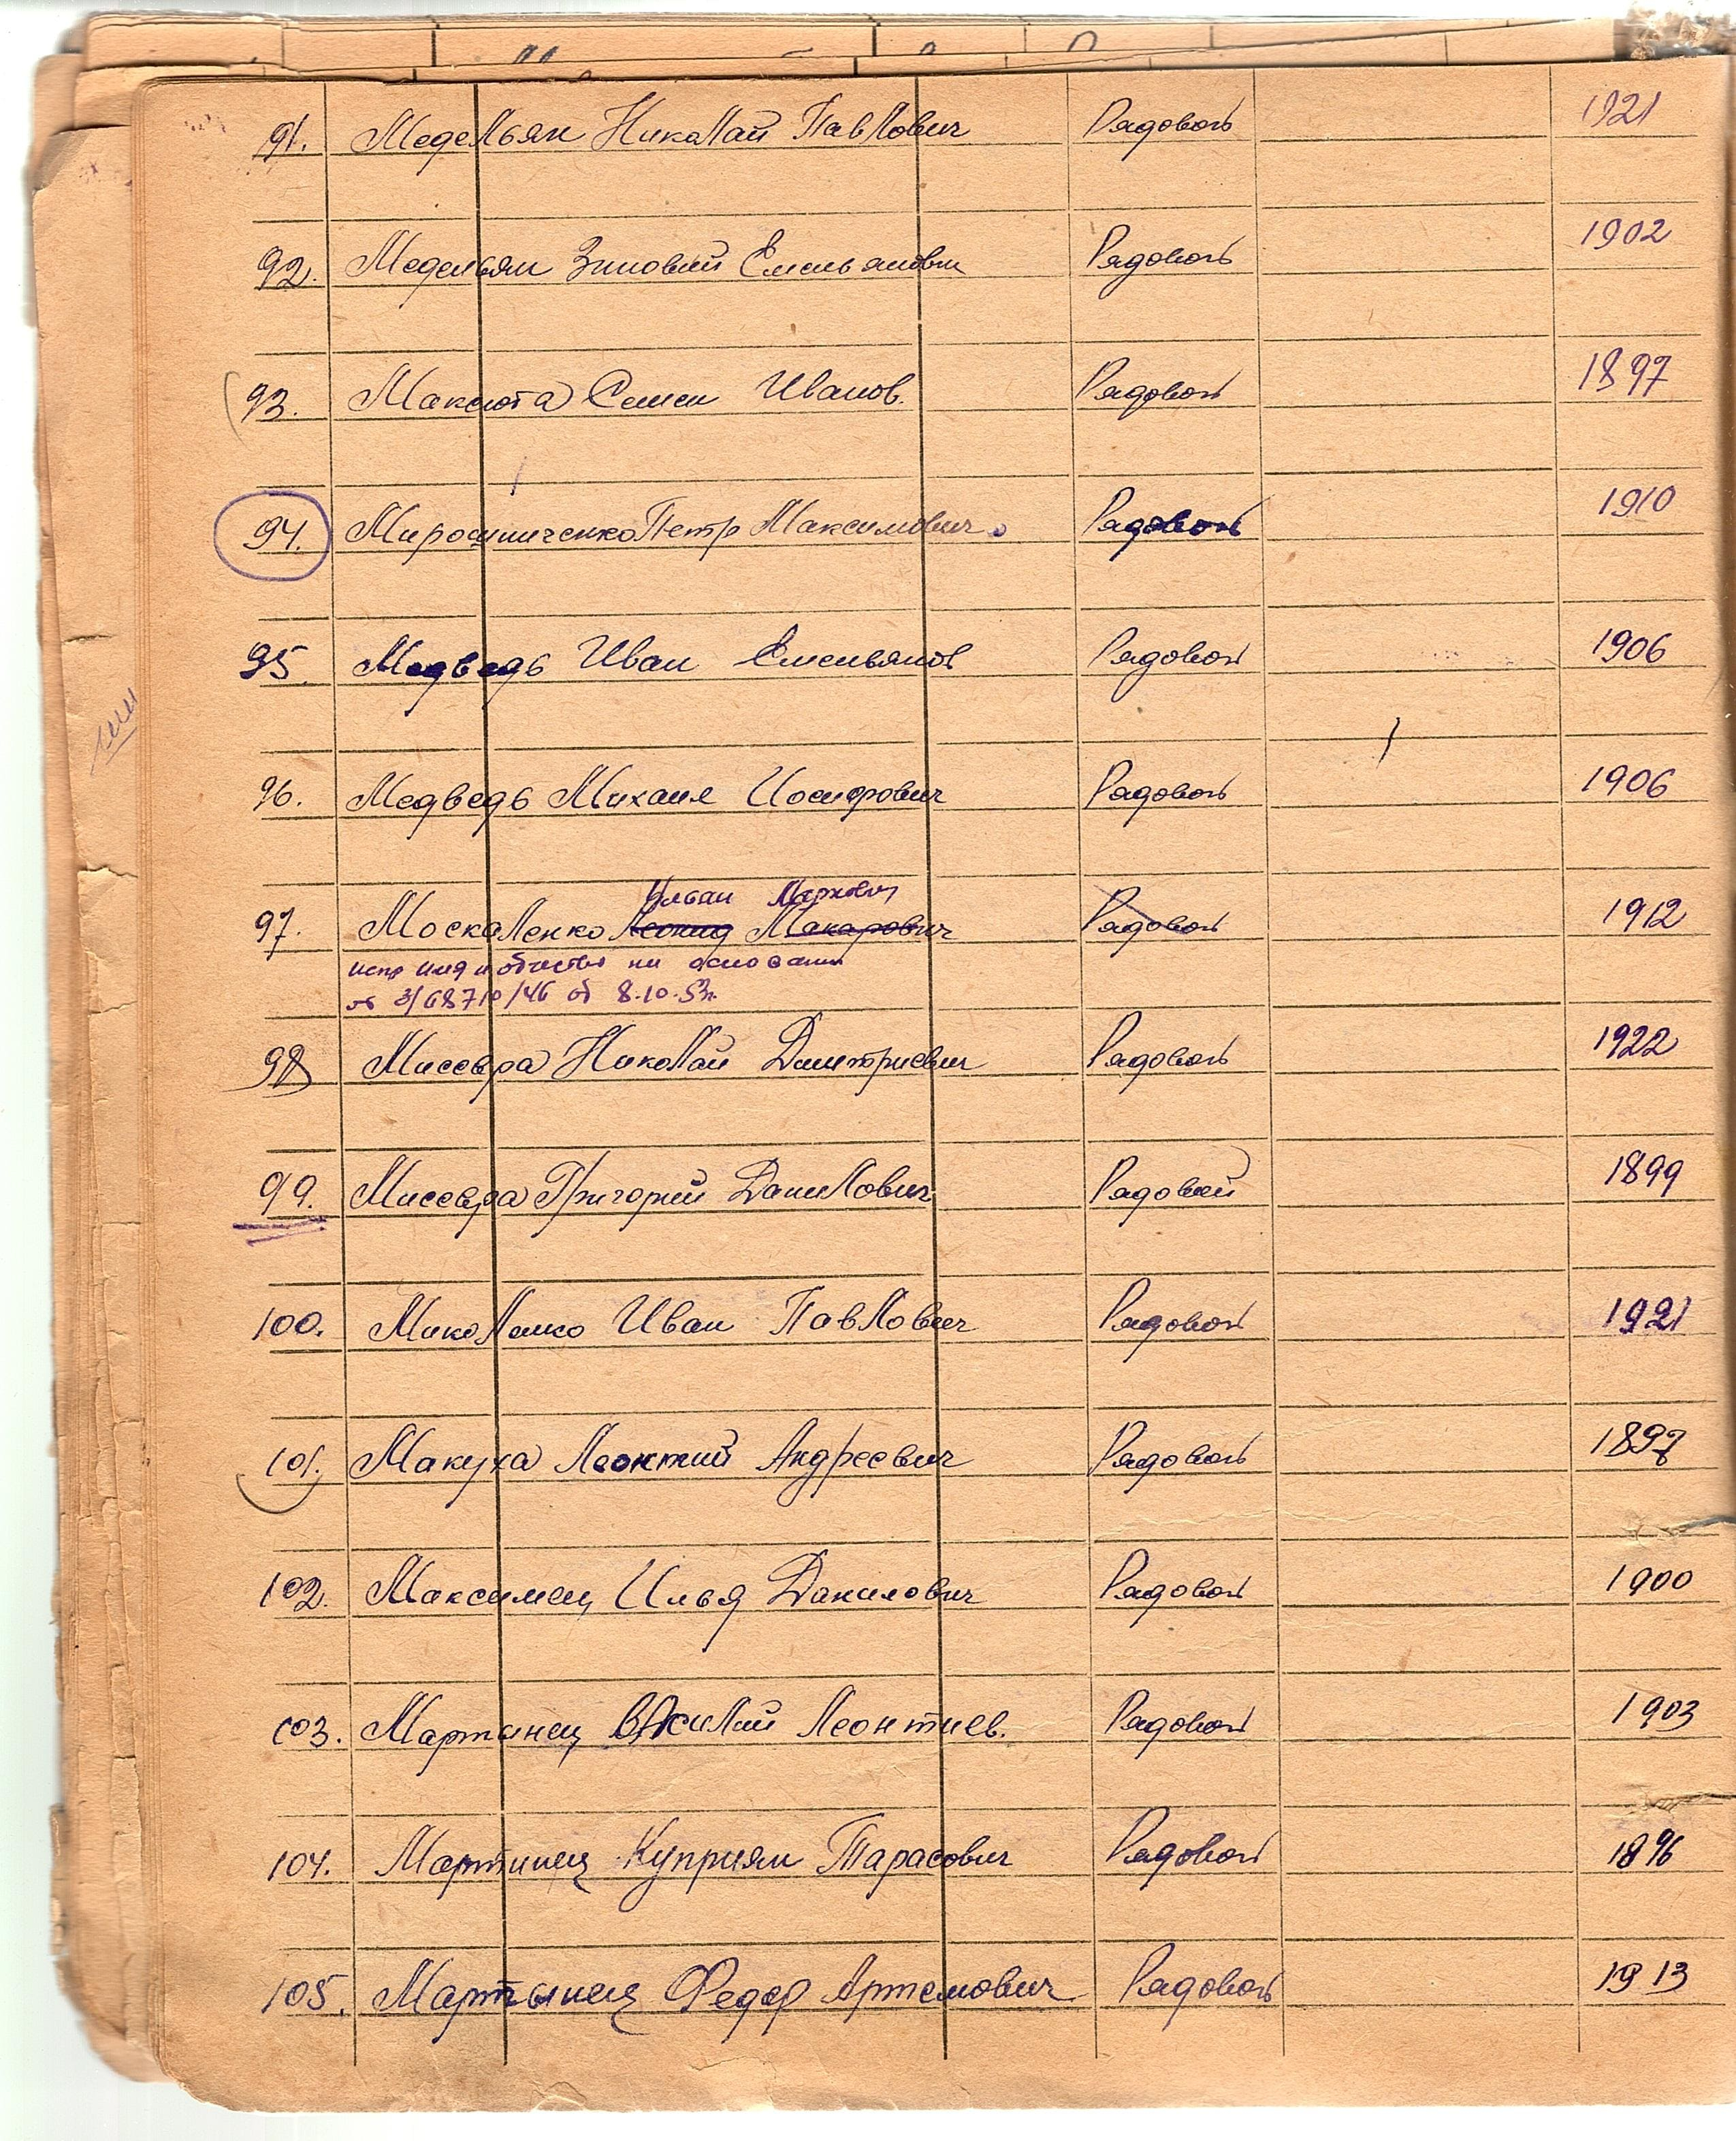 91. Медельян Николай Павлович Рядовой 1921
92. Медельян Зиновий Емельянович Рядовой 1902
93. Максюта Семен Иванов. Рядовой 1897
94. Мирошниченко Петр Максимович Рядовой 1910
95. Медведь Иван Емельянов Рядовой 1906
96. Медведь Михаил Иосифович Рядовой 1906
Ульян Маркович
97. Москаленко Леонид Макарович Рядовой 1912
испр имя и отчество на основании
8.10.53г.
98 Мисевра Николай Дмитриевич Рядовой 1922
99. Мисевра Григорий Данилович Рядовой 1899
100. Миколенко Иван Павлович Рядовой 1921
101. Макуха Леонтий Андреевич Рядовой 1897
102. Максимец Илья Данилович Рядовой 1900
103. Мартынец Василий Леонтиев. Рядовой 1903
104. Мартинец Куприян Тарасович Рядовой 1896
105. Мартынец Федор Артемович Рядовой 1913